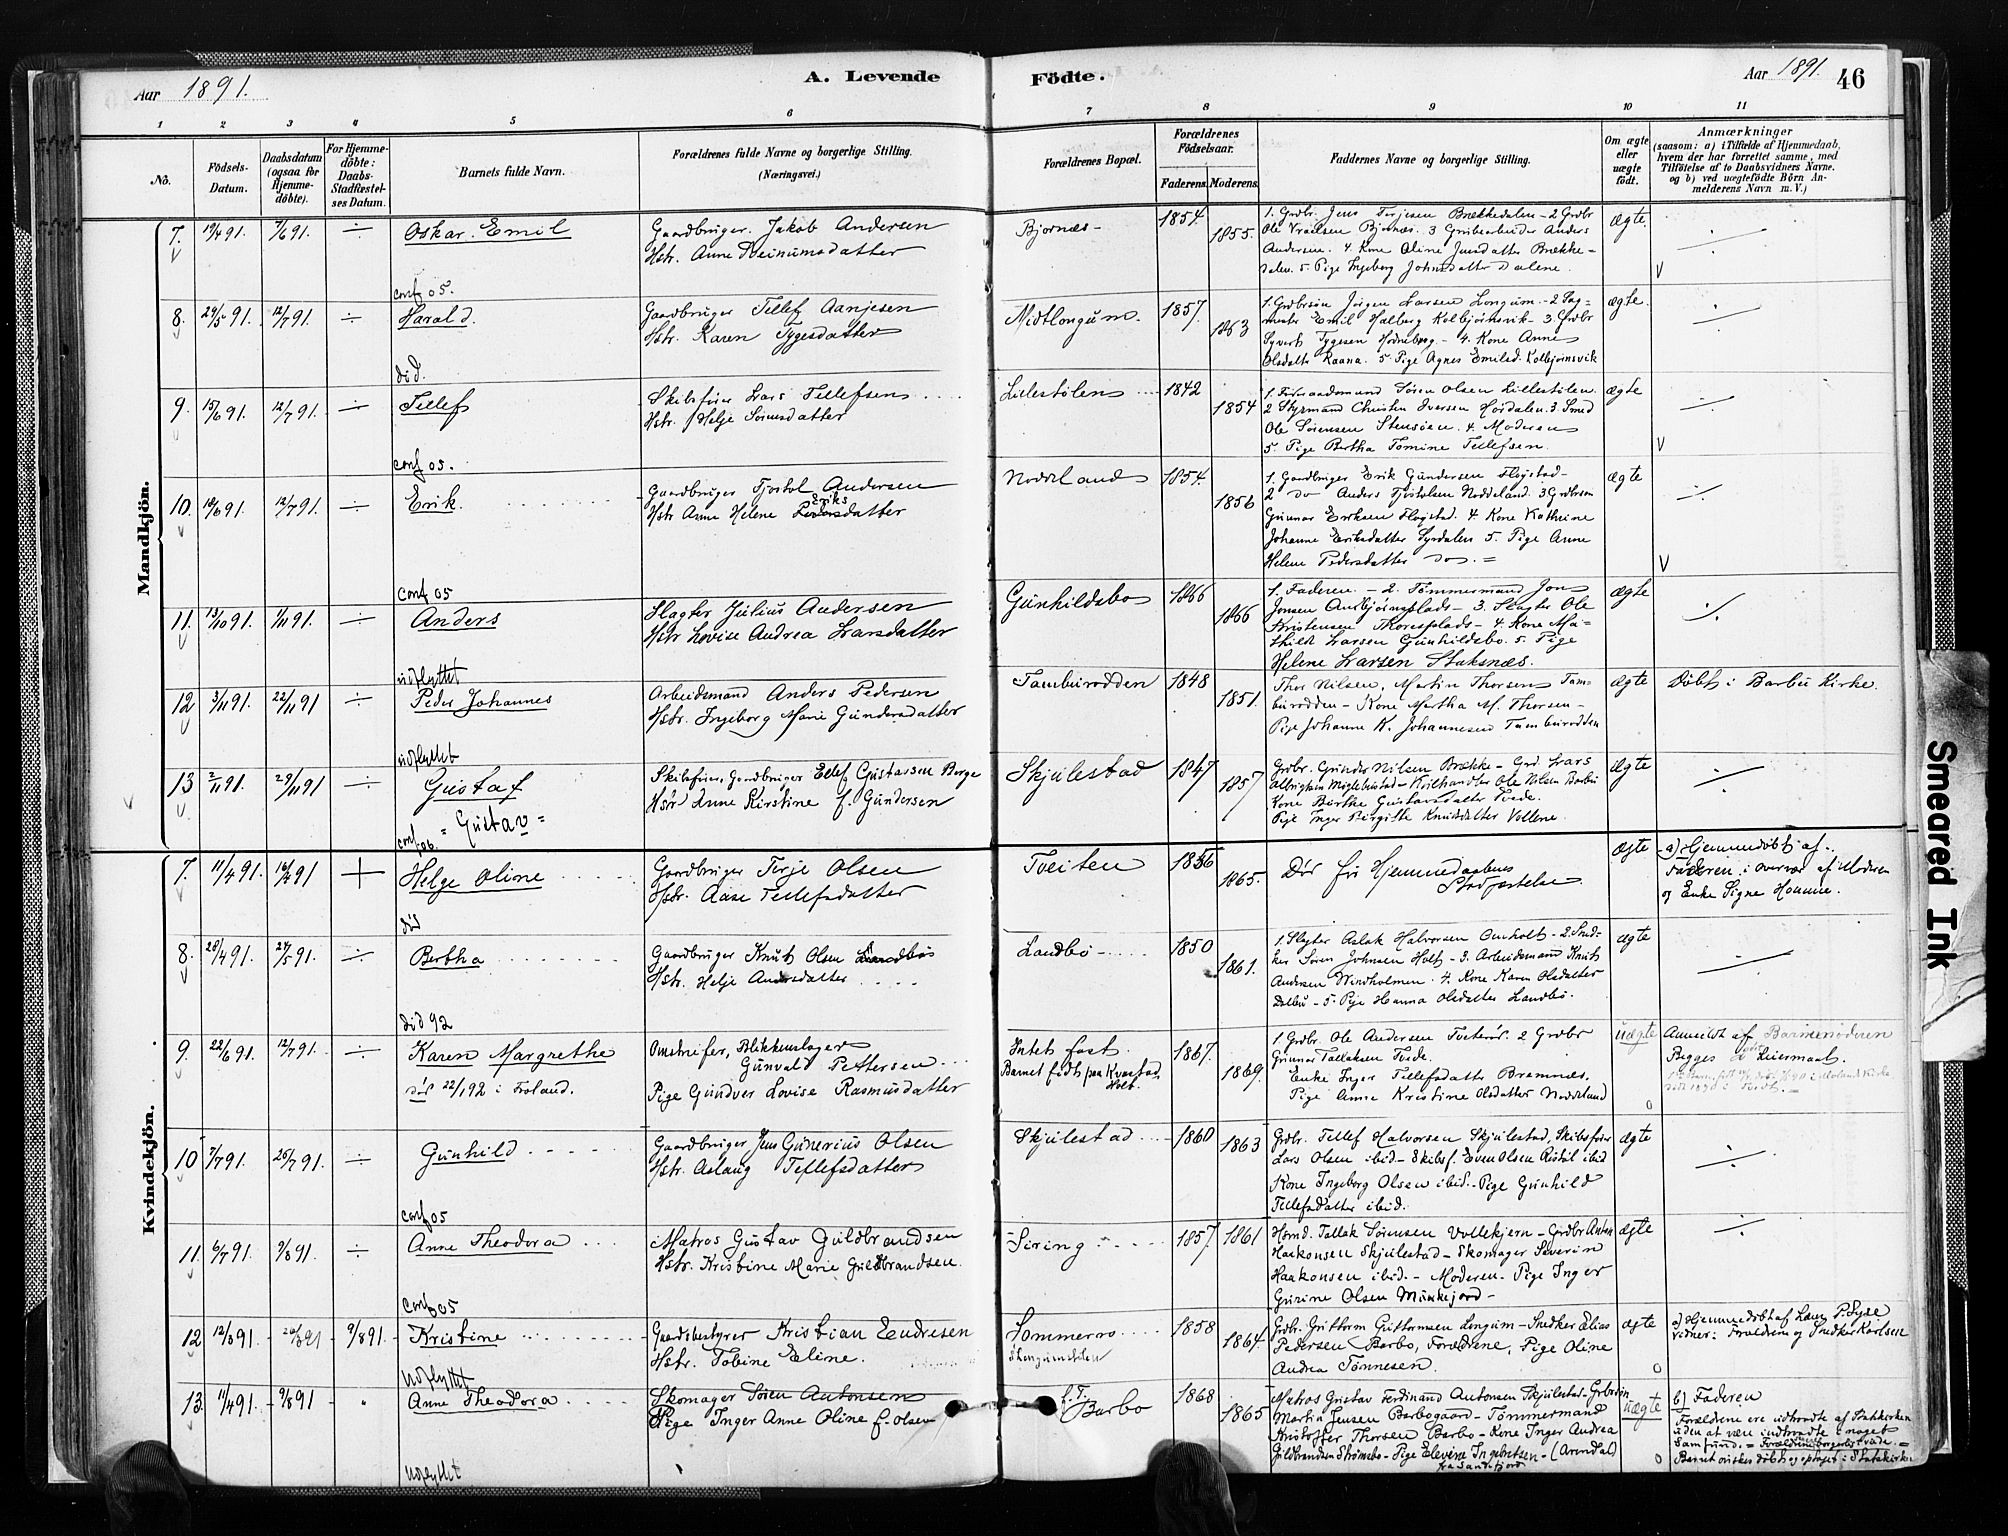 Aar 1891.
A. Levende Födte.
Aar 1891.
46
1 2 3 4 5 6 7 8 9 10 11
No.
Födsels-Datum.
Daabsdatum (ogsaa for Hjemme-döbte).
For Hjemme-döbte: Daabs-Stadfæstel-ses Datum.
Barnets fulde Navn.
Forældrenes fulde Navne og borgerlige Stilling.
(Næringsvei.)
Forældrenes Bopæl.
Forældrenes Födselsaar.
Faderens. Moderens.
Faddernes Navne og borgerlige Stilling.
Om ægte eller uægte födt.
Anmærkninger
(saasom: a) i Tilfælde af Hjemmedaab,
hvem der har forrettet samme, med
Tilföielse af to Daabsvidners Navne.
og b) ved uægtefödte Börn An-
melderens Navn m. V.)
Mandkjön.
7. 19/4 91. 7/6 91. Oskar Emil
Gaardbruger Jakob Andersen
Hstr. Anne Steinumsdatter
Bjornæs - 1854. 1855.
1. Grdbr. Jens Terjesen Brækkedalen - 2 Grdbr
Ole Vraalsen Bjornæs. 3 Grubearbeider Anders
Andersen. 4. Kone Oline Jensdatter Brække-
dalen. 5. Pige Ingeborg Johnsdatter Dalene.
ægte
conf 05.
8. 29/5 91. 12/7 91. Harald.
Gaardbruger Tellef Aanjesen
Hstr. Karen Tygesdatter
Midtlongum. 1857. 1863
1. Grdbrsön Jörgen Larsen Longum. - 2 Sag-
mester Emil Halberg Kolbjörnsvik - 3. Grdbr
Syvert Tygesen Hodnebrog - 4. Kone Anne
Olsdatter Raana. 5. Pige Agnes Emilsd. Kolbjornsvik
ægte.
did.
9. 15/6 91. 12/7 91. Tellef
Skibsförer Lars Tellefsen
Hstr. Helje Sörensdatter
Lillestölen 1842 1854
1. Forsandsmand Sören Olsen Lillestölen.
2 Styrmand Christen Iversen Hordalen. 3. Smed
Ole Sörensen Stensöien. 4. Moderen
5. Pige Bertha Tomine Tellefsen.
ægte
conf 05.
10. 18/6 91. 12/7 91. Erik.
Gaardbruger Tjostol Andersen
Hstr Anne Helene Eriksdatter
Noddeland 1854. 1856
1. Gaardbruger Erik Gundersen Flogstad -
2 do Anders Tjostolsen Noddeland. 3 Grdbrsön
Gunnar Eriksen Flogstad. 4. Kone Kathrine
Johanne Eriksdatter Syrdalen 5. Pige Anne
Helene Pedersdatter do. =
ægte
conf 05
11. 13/10 91. 1/11 91. Anders
Slagter Julius Andersen
Hstr Lovise Andrea Larsdatter
Gunhildsbo 1866 1866
1. Faderen - 2. Tömmermand Jon
Jonsen Ausbjörnsplads - 3. Slagter Ole
Kristensen Thoresplads - 4. Kone Ma-
thilde Larsen Gunhildsbo. 5. Pige
Helene Larsen Staksnæs.
ægte
udflyttet
12 3/11 91. 22/11 91 Peder Johannes
Arbeidsmand Anders Pedersen
Hstr. Ingeborg Marie Gundersdatter
Tamburodden 1848 1851.
Thor Nilsen, Martin Thorsen Tam-
burodden - Kone Martha M. Thorsen -
Pige Johanne K. Johannesen Tamburodden
ægte
Döbt i Barbu Kirke.
udflyttet
13 2/11 91. 29/11 91 Gustaf
= Gustav =
Skibsförer, Gaardbruger Ellef Gustavsen Borge
Hstr Anne Kirstine f. Gundersen
Skjulestad 1847 1857
Grdbr. Gunder Nilsen Brække - Grd. Lars
Albrigtsen Möglebustad - Kölhandler Ole Nilsen Barbu
Kone Birthe Gustavsdatter Tvede.
Pige Inger Birgitte Knudsdatter Vollene.
ægte
conf. 06.
Kvindekjön.
7. 11/4 91. 16/4 91 Helge Oline
Gaardbruger Terje Olsen
Hstr. Aase Tellefsdatter
Tveiten 1856 1865.
Dör för Hjemmedaabens
Stadfæstelse
ægte
a) Hjemmedöbt af
Faderen i overvær af Moderen
og Enke Signe Homme.
död
8. 28/4 91. 24/5 91. Bertha
Gaardbruger Knut Olsen Landbö
Hstr. Helje Andersdatter
Landbö 1850 1861.
1. Slagter Aslak Halvorsen Omholt - 2. Sned-
ker Sören Johnsen Holt - 3. Arbeidsmand Knut
Andersen Windholmen. 4. Kone Karen Olsdatter
Dalbu - 5. Pige Hanna Olsdatter Landbö.
ægte
did 92
9. 22/6 91. 12/7 91. Karen Margrethe
död 22/1 92 i Froland.
Omstreifer, Blikkenslager
Gunvald Pettersen
Pige Gundver Lovise Rasmusdatter
Intet fast.
Barnet födt paa Kvastad
Holt.
1867. 1869.
1. Grdbr. Ole Andersen Tveteraas. 2 Grdbr
Gunnar Tallaksen Tvede.
Enke Inger Tellefsdatter Bramnæs.
Pige Anne Kristine Olsdatter Noddeland
uægte
Anmeldt af Barnemoderen
Begges Leiermaal.
10 7/7 91. 26/7 91. Gunhild
Gaardbruger Jens Gunerius Olsen
Hstr. Aslaug Tellefsdatter
Skjulestad 1860 1863
Grdbr. Tellef Halvorsen Skjulestad, Skibsförer
Lars Olsen ibid - Skibsf. Even Olsen Röskil ibid
Kone Ingeborg Olsen ibid. - Pige Gunhild
Tellefsdatter ibid.
ægte
conf 05
11. 6/7 91. 9/8 91. Anne Theodora
Matros Gustav Guldbrandsen
Hstr. Kristine Marie Guldbrandsen.
Siring 1857 1861
Hsmd. Tallak Sörensen Vollekjern - Grdbr Anton
Haakonsen Skjulestad - Skomager Severin
Haakonsen ibid. - Moderen - Pige Inger
Gurine Olsen Munkejord -
ægte
conf 05
12 12/3 91. 9/8 91. Kristine
Gaardsbestyrer Kristian Endresen
Hstr. Tobine Eline.
Sommerro
1858 1864.
Grdbr. Guttorm Guttormsen Longum - Snedker Elias
Pedersen Barbo, Forældrene, Pige Oline
Andrea Tönnesen.
ægte
a) Hjemmedöbt af Læge P. Syse
Vidner: Forældrene og Snedker Karlsen
Udflyttet
13. 11/4 91. 9/8 91 Anne Theodora
Skomager Sören Antonsen
Pige Inger Anne Oline f. Olsen
f. T.
Barbo
1868 1865
Matros Gustav Ferdinand Antonsen Skjulestad - Grbrsön
Martin Jensen Barbogaard - Tömmermand
Kristoffer Thorsen Barbo - Kone Inger Andrea
Guldbrandsen Strömsbo - Pige Elevine Ingebretsen - (Arendal)
fra Sandefjord
uægte
b) Faderen
Forældrene ere udtraadte af Statskirken
uden at være indtraadte i noget
Samfund. = Forældrene borgerlig viede. =
Barnet önskes döbt og optaget i Statskirken
Udflyttet
Smeared Ink